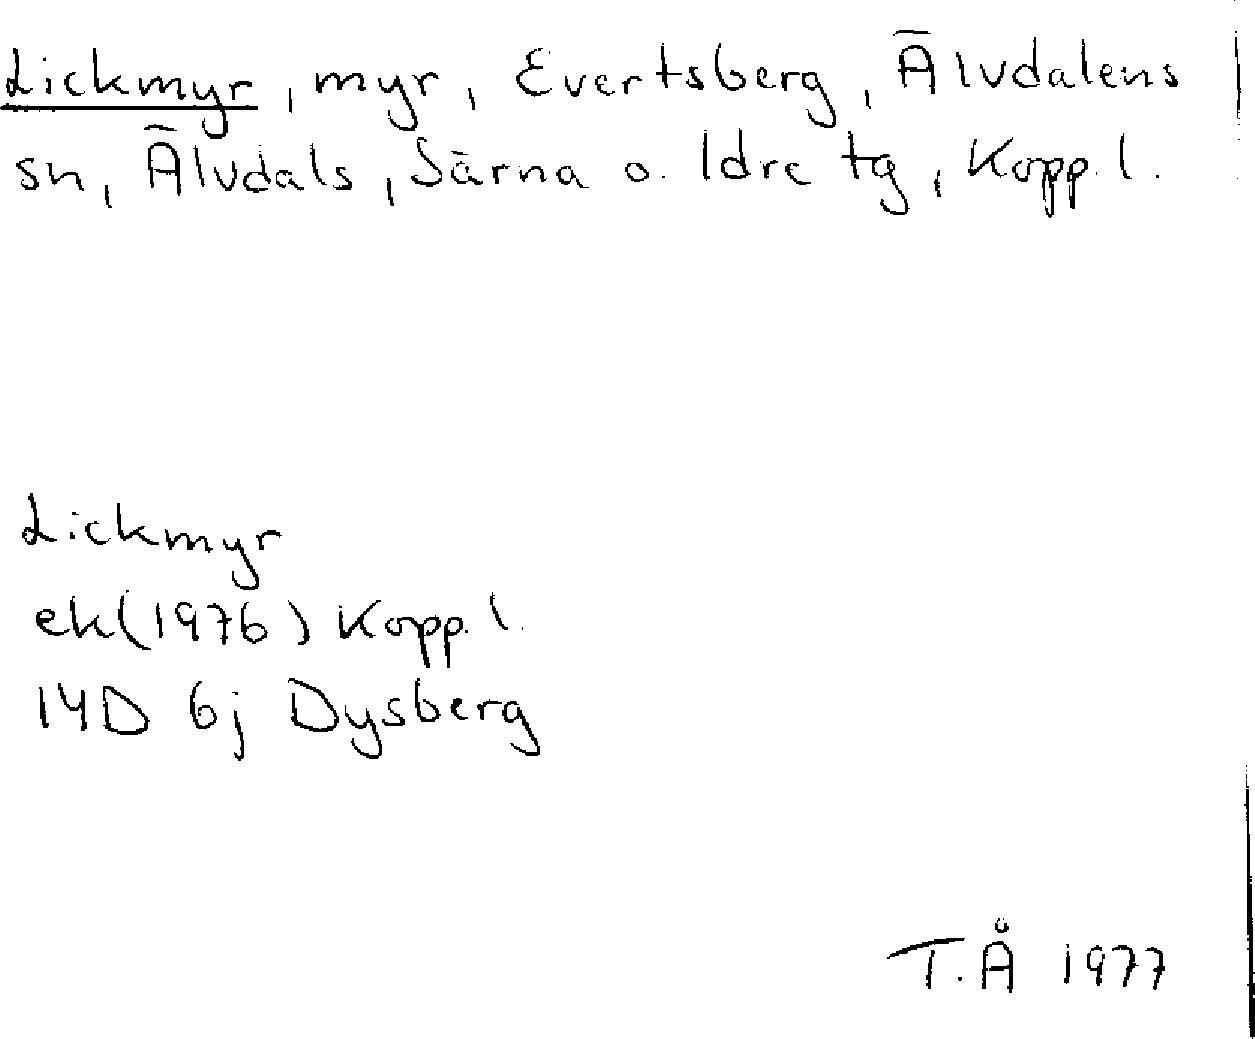 Lickmyr, myr, Evertsberg, Älvdalens
sn, Älvdals, Särna o. Idre tg, Kopp. l.
Lickmyr
ek(1976) Kopp. l.
14D 6j Dysberg
T.Å 1977